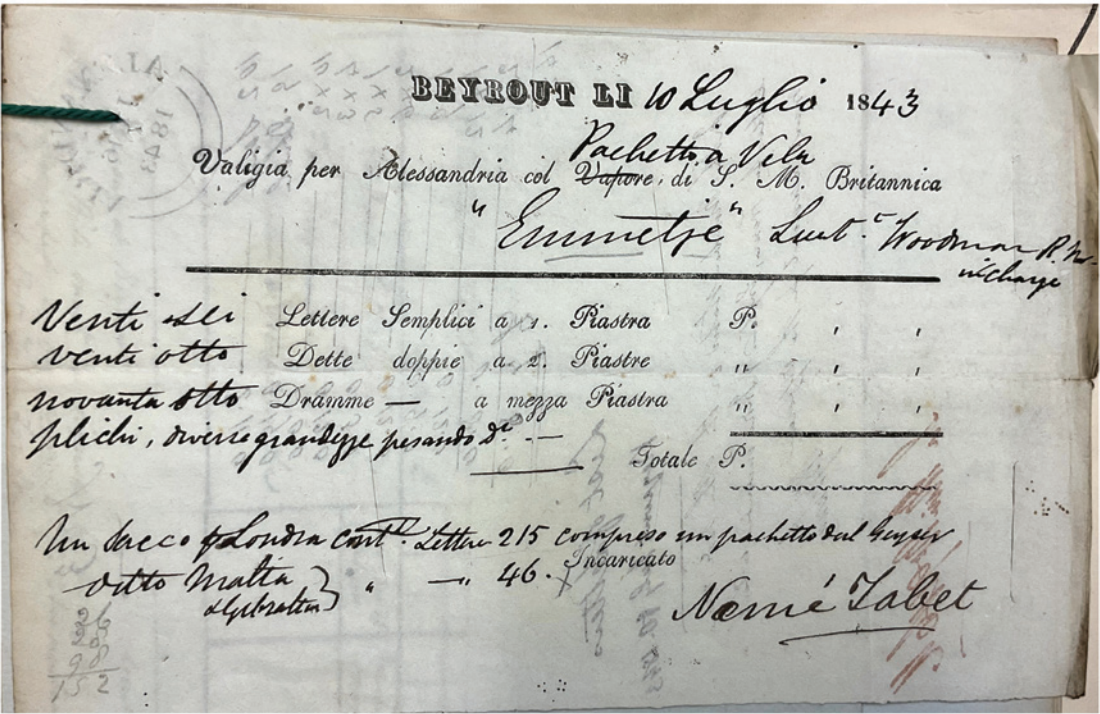 BEYROUT LI 10 Luglio 1843
Pachetto a Vela
Valigia per Alessandria col Vapore, di S. M. Britannica
"Emmetje" Lieut. Woodman R. N.
in Charge
Venti sei Lettere Semplici a 1. Piastra P. , ,
venti otto Dette doppie a 2. Piastre " , ,
novanta otto Dramme — a mezza Piastra " , ,
plichi, diverse grandezze pesando
Totale P.
Un sacco p Londra cont. Lettere 215 compreso un pachetto dal Geyser
Incaricato
ditto Malta " — " 46.
& Gibraltar
Nœmé Tabet
1843